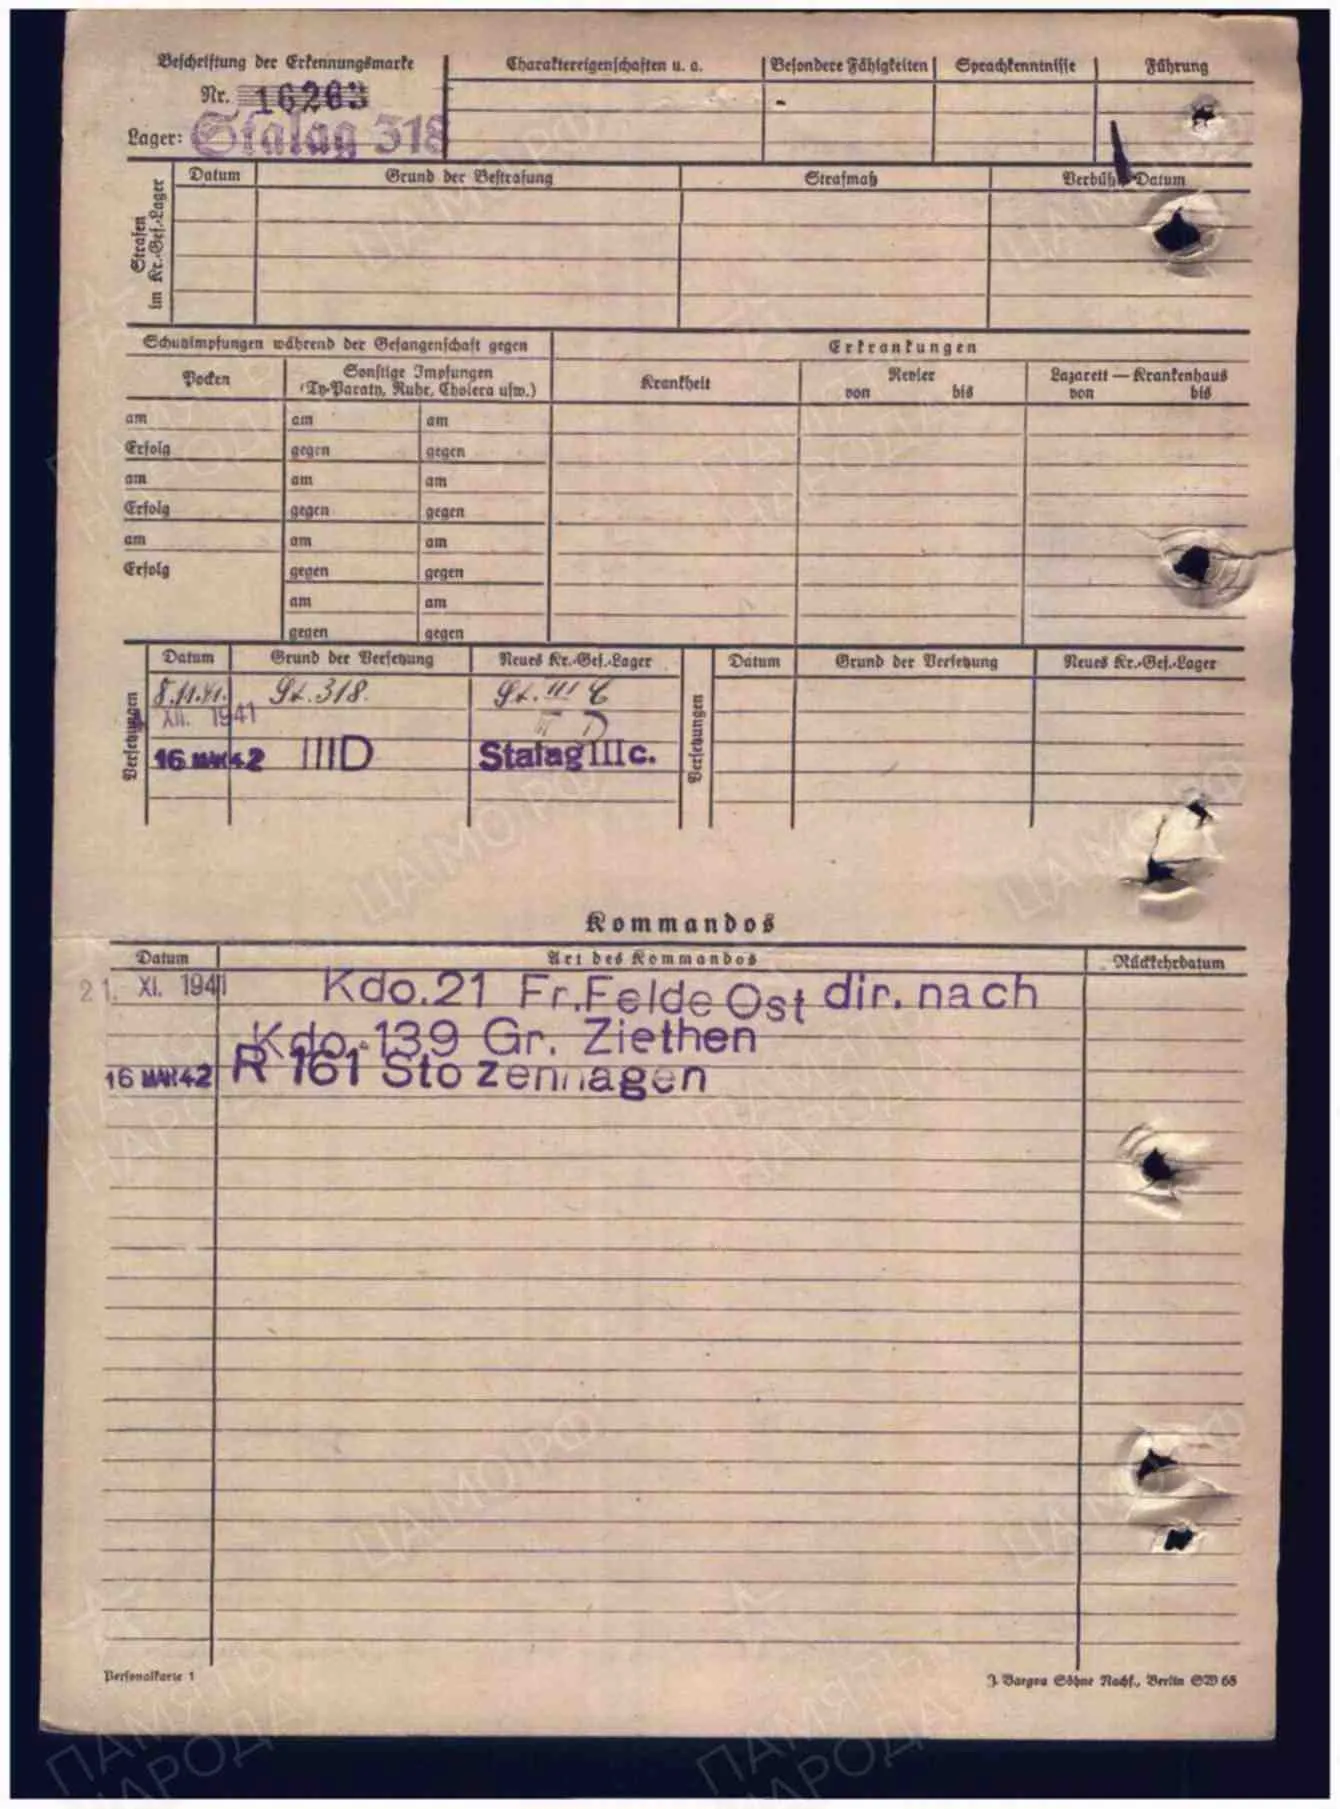 Beschriftung der Erkennungsmarke
Nr. 16263
Lager: Stalag 318
Charaktereigenschaften u. a.
Besondere Fähigkeiten
Sprachkenntnisse
Führung
Strafen
im Kr.-Gef.-Lager
Datum
Grund der Bestrafung
Strafmaß
Verbüßt Datum
Schutzimpfungen während der Gefangenschaft gegen
Erkrankungen
Pocken
Sonstige Impfungen
(Ty-Paraty, Ruhr, Cholera usw.)
Krankheit
Revier
von bis
Lazarett — Krankenhaus
von bis
am am am
Erfolg gegen gegen
am am am
Erfolg gegen gegen
am am am
Erfolg gegen gegen
am am
gegen gegen
Versetzungen
Datum Grund der Versetzung Neues Kr.-Gef.-Lager
8.11.41. St. 318. St. III C
XII. 1941 III D
16 MAR 42 IIID Stalag IIIc.
Versetzungen
Datum Grund der Versetzung Neues Kr.-Gef.-Lager
Kommandos
Datum Art des Kommandos Rückkehrdatum
21. XI. 1941 Kdo.21 Fr.Felde Ost dir. nach
Kdo. 139 Gr. Ziethen
16 MAR 42 R 161 Stozenhagen
Personalkarte 1
J. Bargou Söhne Nachf., Berlin SW 68
ЦАМО.РФ
ПАМЯТЬ
НАРОДА